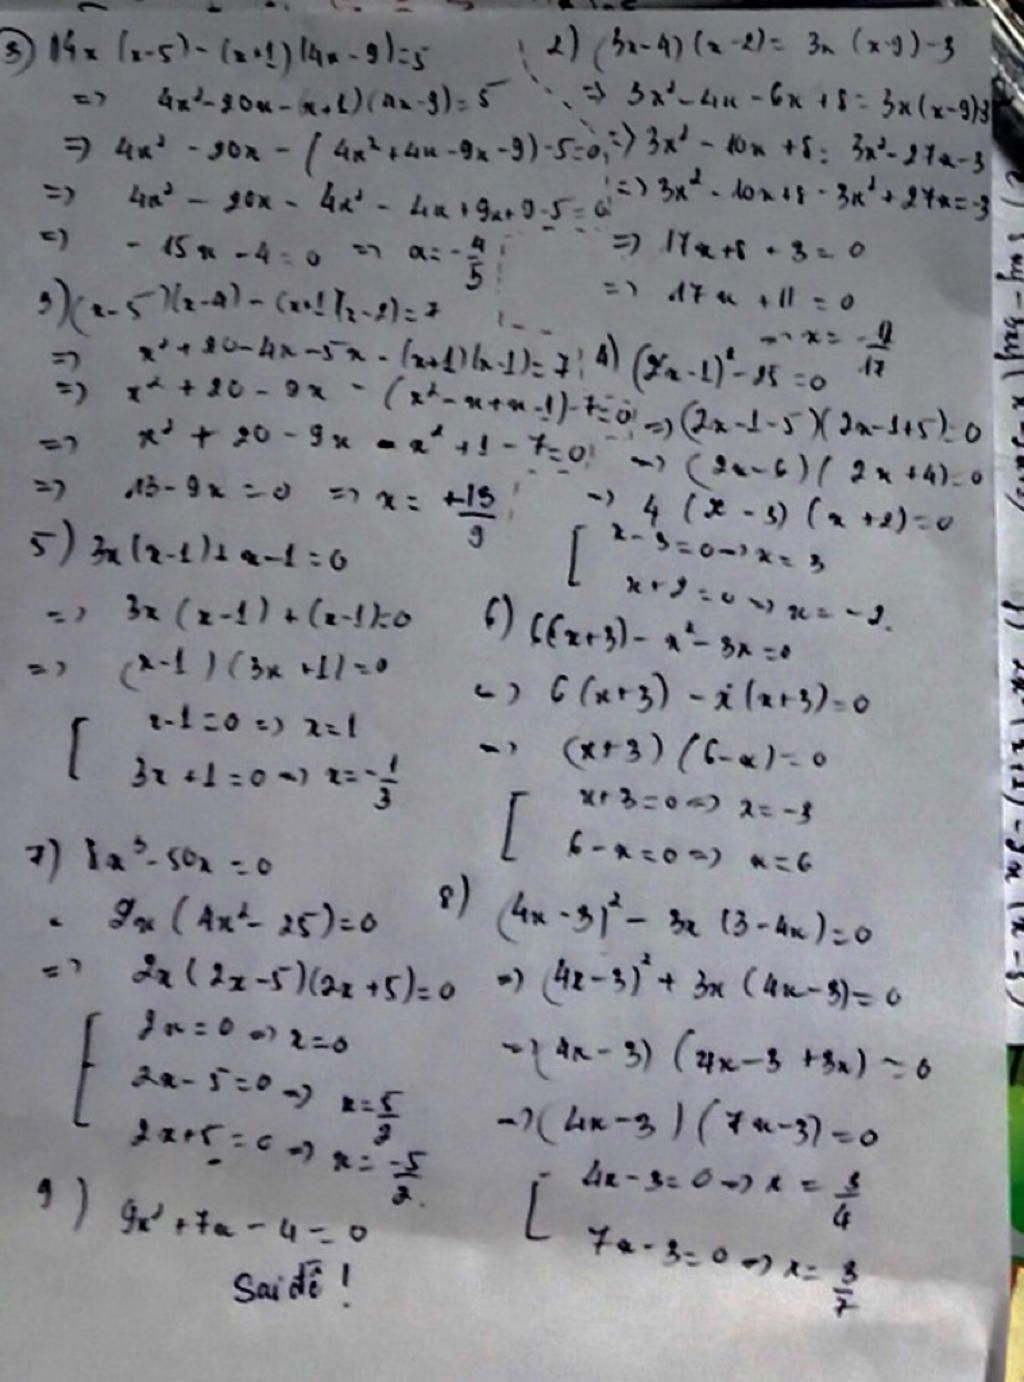 3) 1) 4x (x-5) - (x+1)(4x-9)=5
=> 4x²-20x-(x+1)(4x-9)=5
=> 4x² -20x - (4x²+4x-9x-9)-5=0
=> 4x² - 20x - 4x² - 4x+9x+9-5=0
=> -15x -4=0 => x=-4/5
2) (3x-4)(x-2)= 3x (x-9)-3
=> 3x²-4x-6x+8= 3x(x-9)-3
=> 3x² - 10x +8= 3x²-27x-3
=> 3x² - 10x+8 - 3x²+27x=-3
=> 17x+8+3=0
=> 17x+11=0
=> x= -11/17
3) (x-5)(x-4) - (x+1)(x-2)=7
=> x²+20-4x-5x-(x+1)(x-1)=7
=> x²+20-9x - (x²-x+x-1)-7=0
=> x² + 20 - 9x - x² +1-7=0
=> 13-9x=0 => x= +13/9
4) (2x-1)²-25=0
=> (2x-1-5)(2x-1+5)=0
=> (2x-6)(2x+4)=0
=> 4 (x-3)(x+2)=0
[ x-3=0=>x=3
x+2=0=>x=-2.
5) 3x(x-1)+x-1=0
=> 3x(x-1)+(x-1)=0
=> (x-1)(3x+1)=0
[ x-1=0=> x=1
3x+1=0=> x=-1/3
6) 6(x+3)-x²-3x=0
=> 6(x+3)-x(x+3)=0
=> (x+3)(6-x)=0
[ x+3=0=> x=-3
6-x=0=> x=6
7) 8x³-50x=0
2x(4x²-25)=0
=> 2x(2x-5)(2x+5)=0
[ 2x=0=> x=0
2x-5=0=> x=5/2
2x+5=0=> x=-5/2.
8) (4x-3)²-3x(3-4x)=0
=> (4x-3)²+3x(4x-3)=0
=> (4x-3)(4x-3+3x)=0
=> (4x-3)(7x-3)=0
[ 4x-3=0=> x=3/4
7x-3=0=> x=3/7
9) 9x²+7x-4=0
Sai đề!